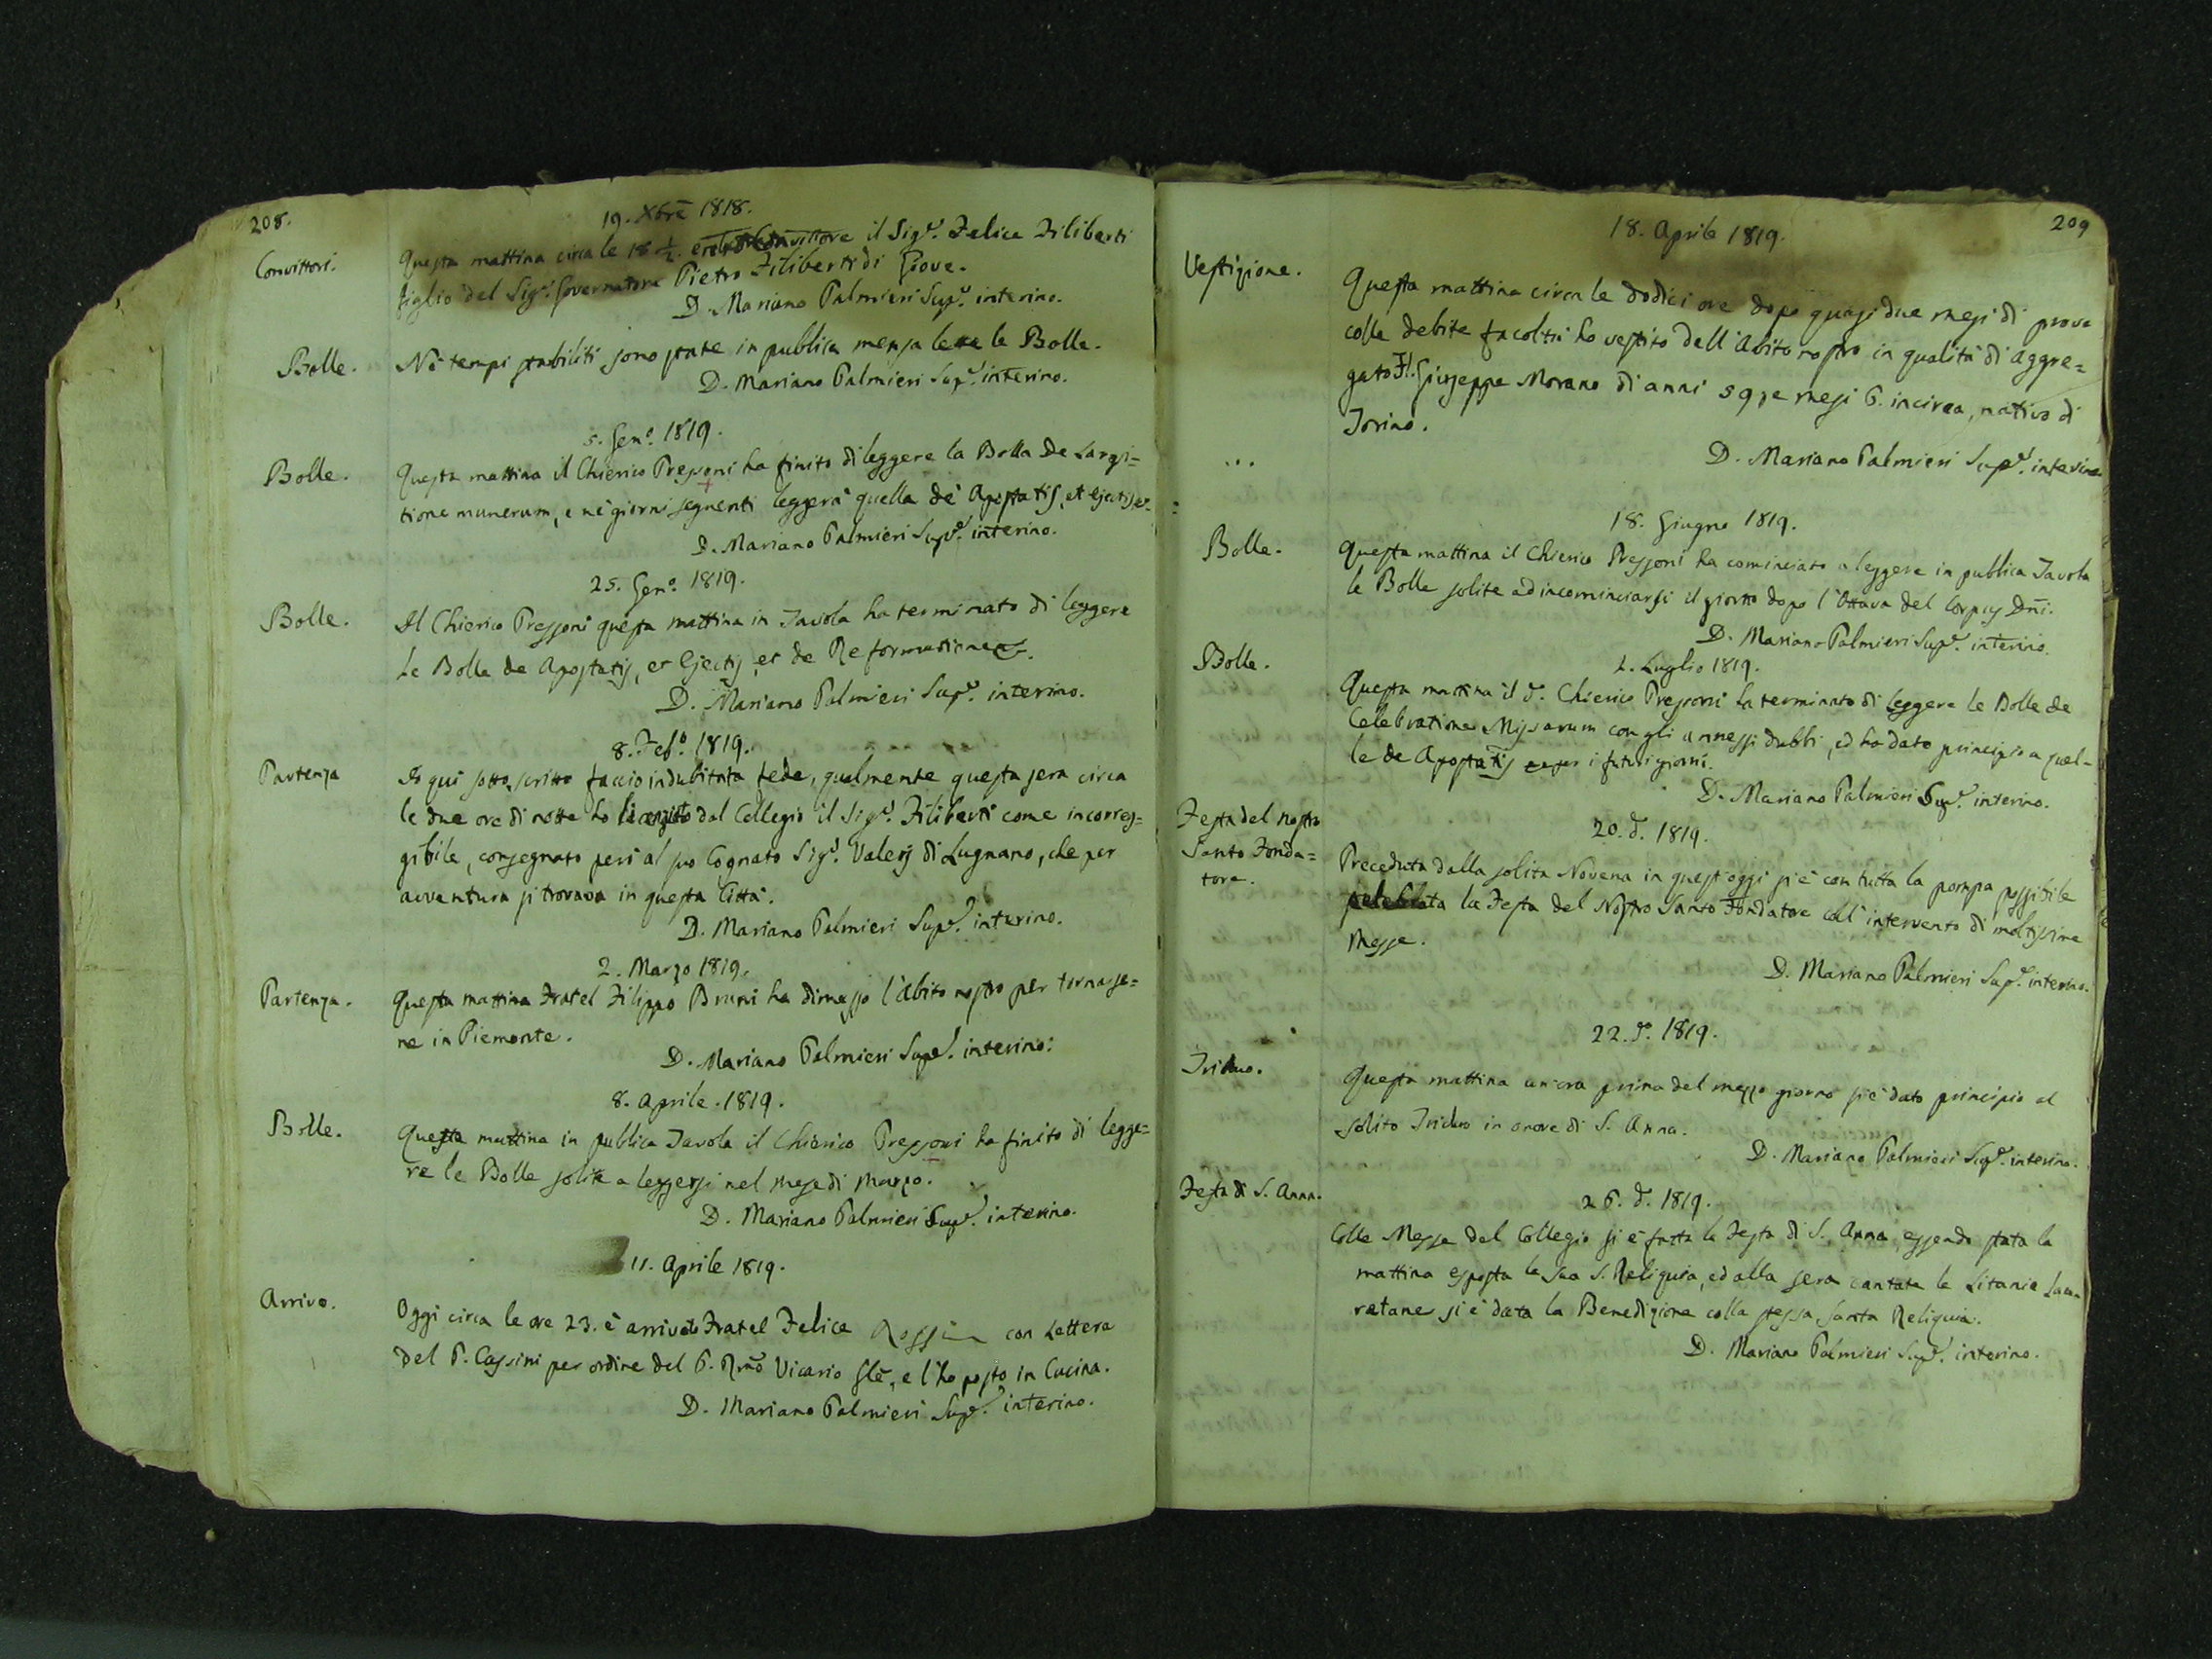 208.
19. Xbre 1818.
Convittori.
Questa mattina circa le 18 ½. il Sigr. Felice Filiberti
figlio del Sigr. Governatore Pietro Filiberti di Giove.
D. Mariano Palmieri Supe. interino.
Bolle.
Ne' tempi stabiliti sono state in publica mensa lette le Bolle.
D. Mariano Palmieri Supe. interino.
5. Geno. 1819.
Bolle.
Questa mattina il Chierico Pressoni ha finito di leggere la Bolla De Largi=
tione munerum, e ne' giorni seguenti leggerà quella de' Apostatis, et ejectis
D. Mariano Palmieri Supe. interino.
25. Geno. 1819.
Bolle.
Il Chierico Pressoni questa mattina in Tavola ha terminato di leggere
le Bolle de Apostatis, et Ejectis, et de Reformatione
D. Mariano Palmieri Supe. interino.
8. Febo. 1819.
Partenza
Io qui sottoscritto faccio indubitata fede, qualmente questa sera circa
le due ore di notte ho licenziato dal Collegio il Sigr. Filiberti come incorreg=
gibile, consegnato perì al suo Cognato Sigr. Valerj di Lugnano, che per
avventura si trovava in questa Città.
D. Mariano Palmieri Supe. interino.
2. Marzo 1819.
Partenza.
Questa mattina Fratel Filippo Bruni ha dimesso l'abito nostro per tornarse=
ne in Piemonte.
D. Mariano Palmieri Supe. interino.
8. Aprile. 1819.
Bolle.
Questa mattina in publica Tavola il Chierico Pressoni ha finito di legge=
re le Bolle solite a leggersi nel mese di Marzo.
D. Mariano Palmieri Supe. interino.
11. Aprile 1819.
Arrivo.
Oggi circa le ore 23. è arrivato Fratel Felice con Lettera
del P. Cassini per ordine del P. Rmo Vicario Gle, e l'ho posto in Cucina.
D. Mariano Palmieri Supe. interino.
209
18. Aprile 1819.
Vestizione.
Questa mattina circa le dodici ore dopo quasi due mesi di prova
colle debite facoltà ho vestito dell'Abito nostro in qualità di Aggre=
gato Fl. Giuseppe Morano di anni 59, e mesi 6. incirca, nativo di
Torino.
D. Mariano Palmieri Supe. interino
...
18. Giugno 1819.
Bolle.
Questa mattina il Chierico Pressoni ha cominciato a leggere in publica Tavola
le Bolle solite ad incominciarsi il giorno dopo l'Ottava del Corpus Dni.
D. Mariano Palmieri Supe. interino.
1. Luglio 1819.
Bolle.
Questa mattina il d. Chierico Pressoni ha terminato di leggere le Bolle de
Celebratione Missarum con gli annessi dubbi, ed ha dato principio a quel=
le de Apostatis per i futuri giorni.
D. Mariano Palmieri Supe. interino.
20. d. 1819.
Festa del nostro
Santo Fonda=
tore.
Preceduta dalla solita Novena in quest'oggi si è con tutta la pompa possibile
celebrata la Festa del Nostro Santo Fondatore coll'intervento di moltissime
Messe.
D. Mariano Palmieri Supe. interino.
22. d. 1819.
Triduo.
Questa mattina un'ora prima del mezzo giorno si è dato principio al
solito Triduo in onore di S. Anna.
D. Mariano Palmieri Supe. interino.
26. d. 1819.
Festa di S. Anna.
Colle Messe del Collegio si è fatta la Festa di S. Anna, essendo stata la
mattina esposta la sua S. Reliquia, ed alla sera cantate le Litanie Lau=
retane si è data la Benedizione colla stessa Santa Reliquia.
D. Mariano Palmieri Supe. interino.